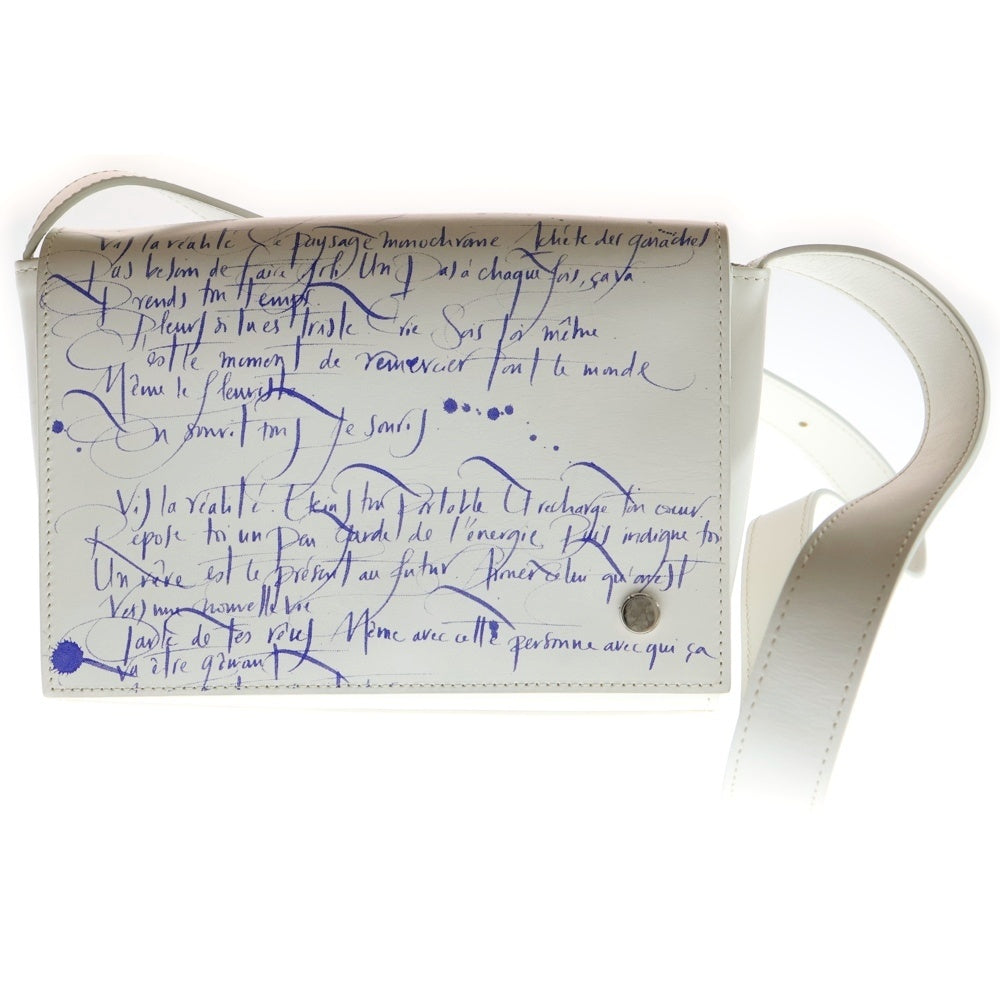 Vis la réalité Le paysage monochrome Achète des ganaches
Pas besoin de faire joli Un pas à chaque fois, ça va.
Prends ton temps.
Pleurs si tu es triste Crie Sois toi même
C'est le moment de remercier tout le monde
Même le fleuriste
On sourit tous Je souris
Vis la réalité. Eteins ton portable Et recharge ton cœur.
Repose toi un peu Garde de l'énergie Puis indigne toi
Un rêve est le présent au futur Aimer celui qu'on est
Vers une nouvelle vie
Parle de tes rêves Même avec cette personne avec qui ça
va être gênant